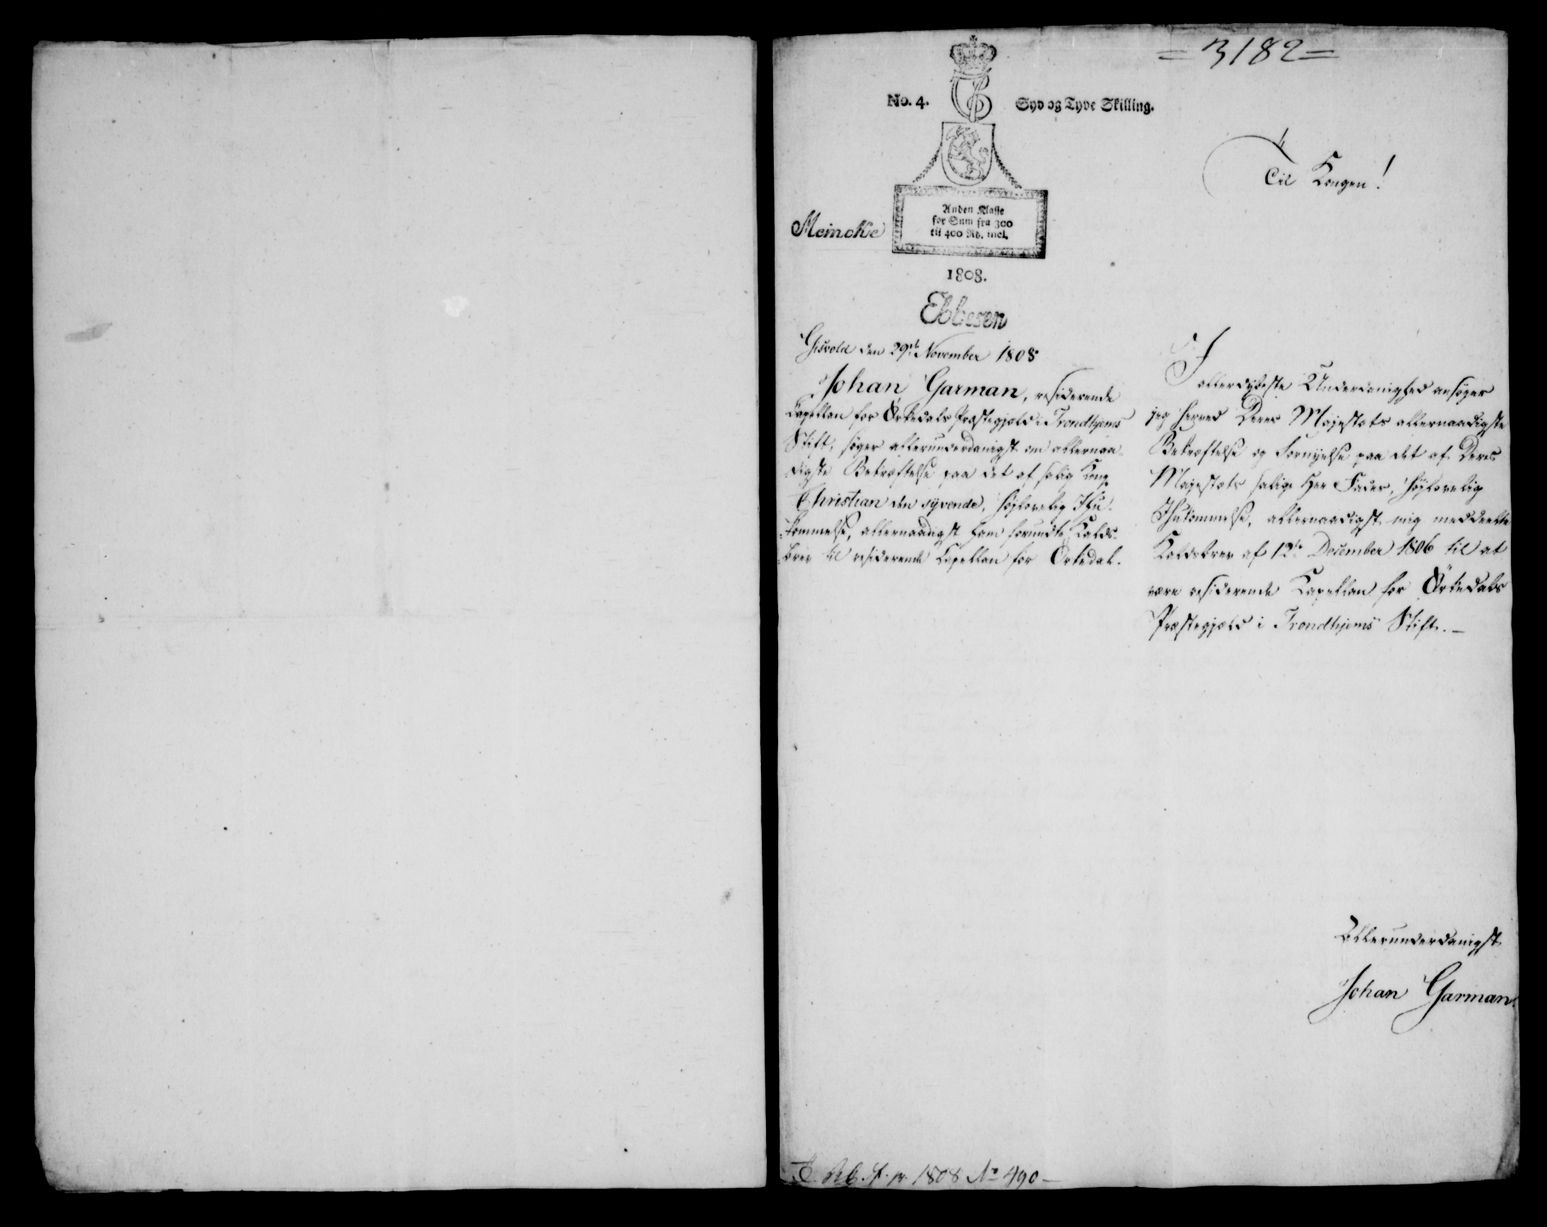 = 3182 =
No. 4. Syv og Tyve Skilling.
Til Kongen!
Anden Klasse
for Sum fra 300
til 400 Rd. incl.
Meincke
1808.
Ebbesen
den 29de November 1808
Johan Garman, residerende
Capellan for Örkedals Præstegjæld i Trondhjems
Stift, søger allerunderdanigst om allernaa-
digste Bekræftelse paa det af salig Kong
Christian den syvende, høylovlig Ihu-
kommelse, allernaadigst ham forundte Kalds-
brev til residerende Capellan for Örkedal.
I
allerdybeste Underdanighed ansøger
jeg herved Deres Majestæts allernaadigste
Bekræftelse og Fornyelse paa det af Deres
Majestæts salige Herr Fader, høylovlig
Ihukommelse, allernaadigst mig meddeelte
Kaldsbrev af 12te December 1806 til at
være residerende Kapellan for Örkedals
Præstegjæld i Trondhjems Stift. –
Allerunderdanigst
Johan Garman.
1808 No 490 –